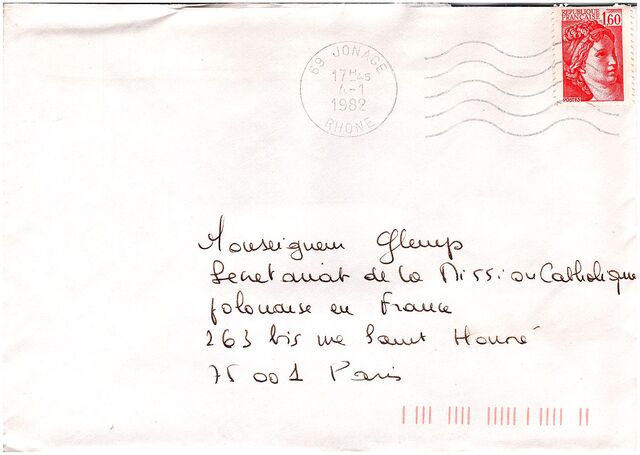 REPUBLIQUE
FRANCAISE
1,60
POSTES
69 JONAGE
17H45
4-1
1982
RHONE
Monseigneur Glemp
Secretariat de la Mission Catholique
polonaise en France
263 bis rue Saint Honoré
75 001 Paris